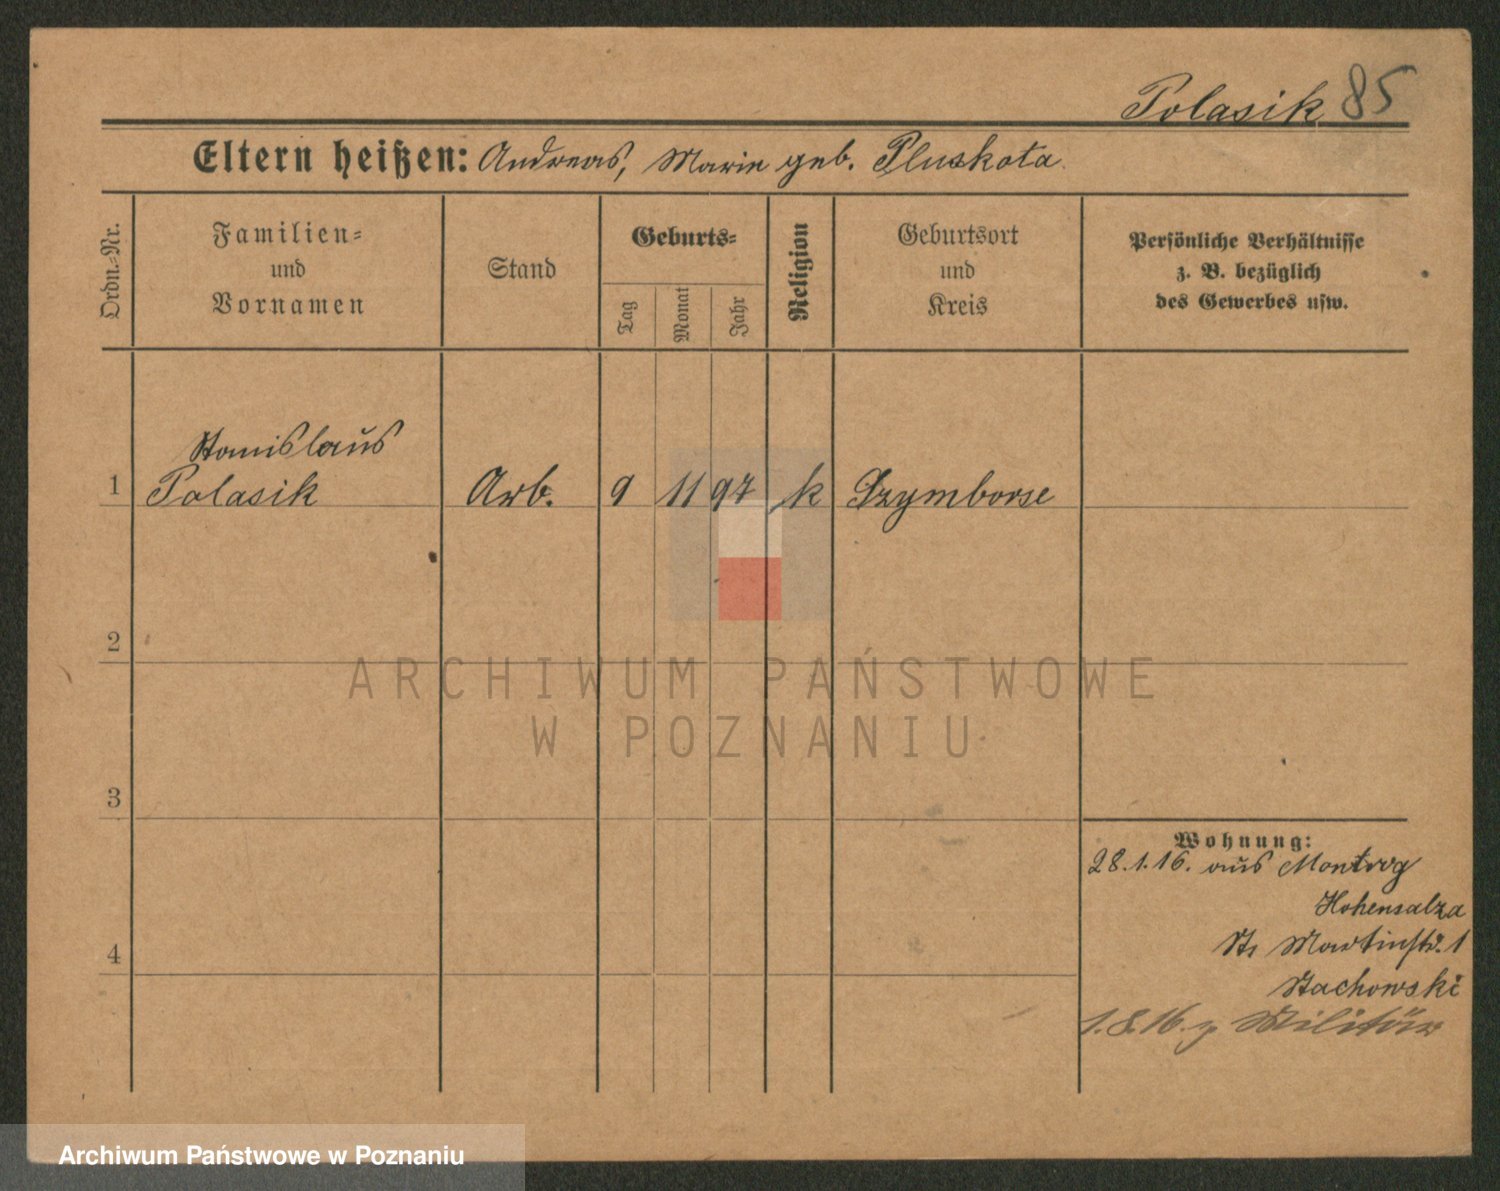 Polasik 85
Eltern heißen: Andreas, Marie geb. Pluskota
Ordn.-Nr.
Familien-
und
Vornamen
Stand
Geburts-
Tag
Monat
Jahr
Religion
Geburtsort
und
Kreis
Persönliche Verhältnisse
z. B. bezüglich
des Gewerbes usw.
Stanislaus
1 Polasik Arb. 9 11 97 k Szymborse
2
3
4
Wohnung:
28.1.16. aus Montwy
Hohensalza
St. Martinstr. 1
Stachowski
1.8.16. z. Militär
ARCHIWUM PAŃSTWOWE
W POZNANIU
Archiwum Państwowe w Poznaniu